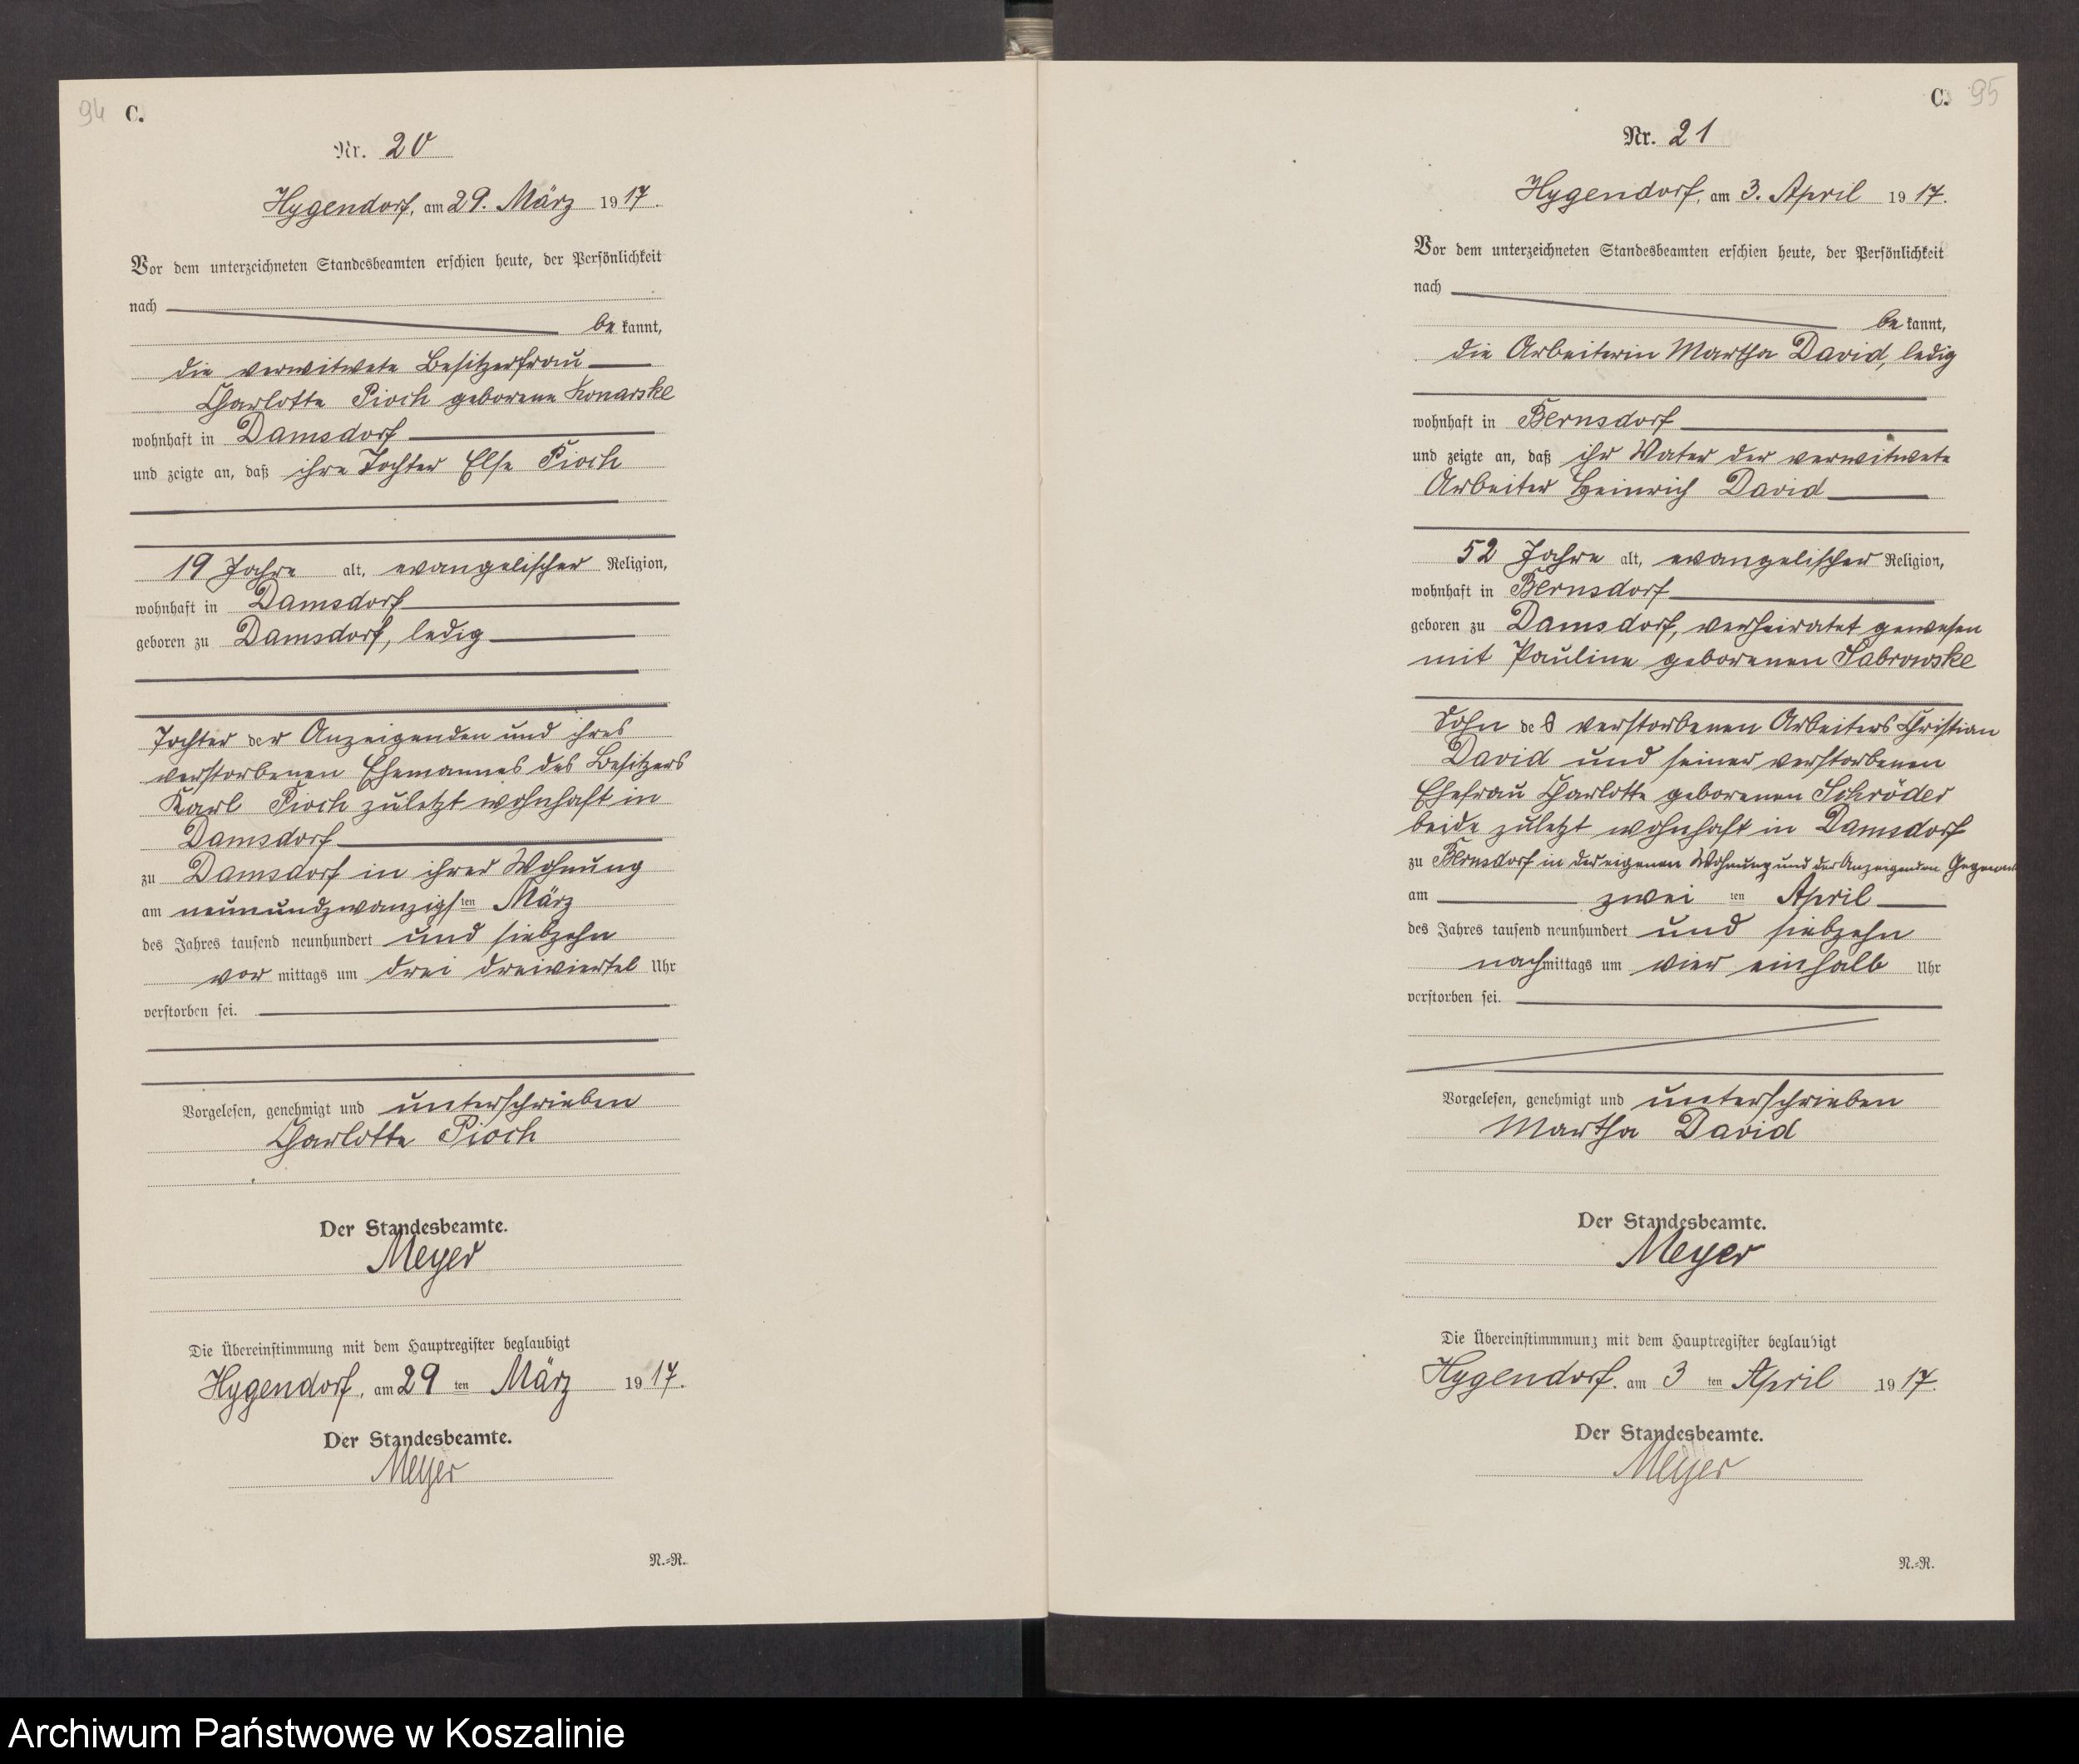 94 C.
Nr. 20
Hygendorf, am 29. März 1917.
Vor dem unterzeichneten Standesbeamten erschien heute, der Persönlichkeit
nach
be kannt,
die verwitwete Besitzerfrau
Charlotte Pioch geborene Konarske
wohnhaft in Damsdorf
und zeigte an, daß ihre Tochter Else Pioch
19 Jahre alt, evangelischer Religion,
wohnhaft in Damsdorf
geboren zu Damsdorf, ledig
Tochter der Anzeigenden und ihres
verstorbenen Ehemannes des Besitzers
Karl Pioch zuletzt wohnhaft in
Damsdorf
zu Damsdorf in ihrer Wohnung
am neunundzwanzigsten März
des Jahres tausend neunhundert und siebzehn
vor mittags um drei dreiviertel Uhr
verstorben sei.
Vorgelesen, genehmigt und unterschrieben
Charlotte Pioch
Der Standesbeamte.
Meyer
Die Übereinstimmung mit dem Hauptregister beglaubigt
Hygendorf, am 29 ten März 1917.
Der Standesbeamte.
Meyer
N.-R.
C. 95
Nr. 21
Hygendorf, am 3. April 1917.
Vor dem unterzeichneten Standesbeamten erschien heute, der Persönlichkeit
nach
be kannt,
die Arbeiterin Martha David, ledig
wohnhaft in Bernsdorf
und zeigte an, daß ihr Vater der verwitwete
Arbeiter Heinrich David
52 Jahre alt, evangelischer Religion,
wohnhaft in Bernsdorf
geboren zu Damsdorf, verheiratet gewesen
mit Pauline geborenen Sabrowske
Sohn des verstorbenen Arbeiters Christian
David und seiner verstorbenen
Ehefrau Charlotte geborenen Schröder
beide zuletzt wohnhaft in Damsdorf
zu Bernsdorf in der eigenen Wohnung und der Anzeigenden Gegenwart
am zwei ten April
des Jahres tausend neunhundert und siebzehn
nachmittags um vier einhalb Uhr
verstorben sei.
Vorgelesen, genehmigt und unterschrieben
Martha David
Der Standesbeamte.
Meyer
Die Übereinstimmmung mit dem Hauptregister beglaubigt
Hygendorf. am 3 ten April 1917.
Der Standesbeamte.
Meyer
N.-R.
Archiwum Państwowe w Koszalinie